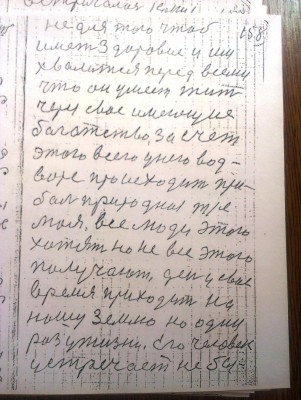 158
не для того чтоб
имет здоровие и им
хвалится перед всеми
что он умеет жит
чери свае имеющие
багатство, за счет
этого всего у него вод-
воре происходит при-
бал природная
моля, все люди этого
хотят но не все этого
получают, ден у свае
время приходит на
нашу Землю но один
раз у жизни. Его человек
устречает не бу